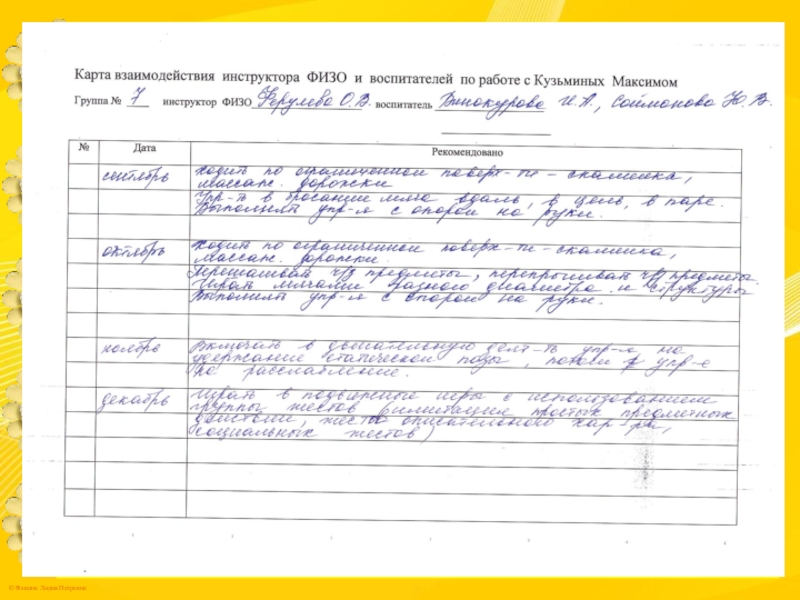 Карта взаимодействия инструктора ФИЗО и воспитателей по работе с Кузьминых Максимом
Группа № 7 инструктор ФИЗО Ферулева О.В. воспитатель Винокурова И.А., Соймонова Ю.В.
№ Дата Рекомендовано
сентябрь ходить по ограниченной поверх-ти - скамейка,
массаж. дорожки
Упр-ть в бросание мяча вдаль, в цель, в паре.
Выполнять упр-я с опорой на руки.
октябрь ходить по ограниченной поверх-ти - скамейка,
массаж. дорожки.
Перешагивать ч/з предметы, перепрыгивать ч/з предметы.
Играть мячами разного диаметра и структуры
Выполнять упр-я с опорой на руки.
ноябрь Включать в двигательную деят-ть упр-я на
удержание статической позы, потом упр-е
на расслабление.
декабрь Играть в подвижные игры с использованием
группы жестов (имитация простых предметных
действий, жесты описательного хар-ра,
социальных жестов)